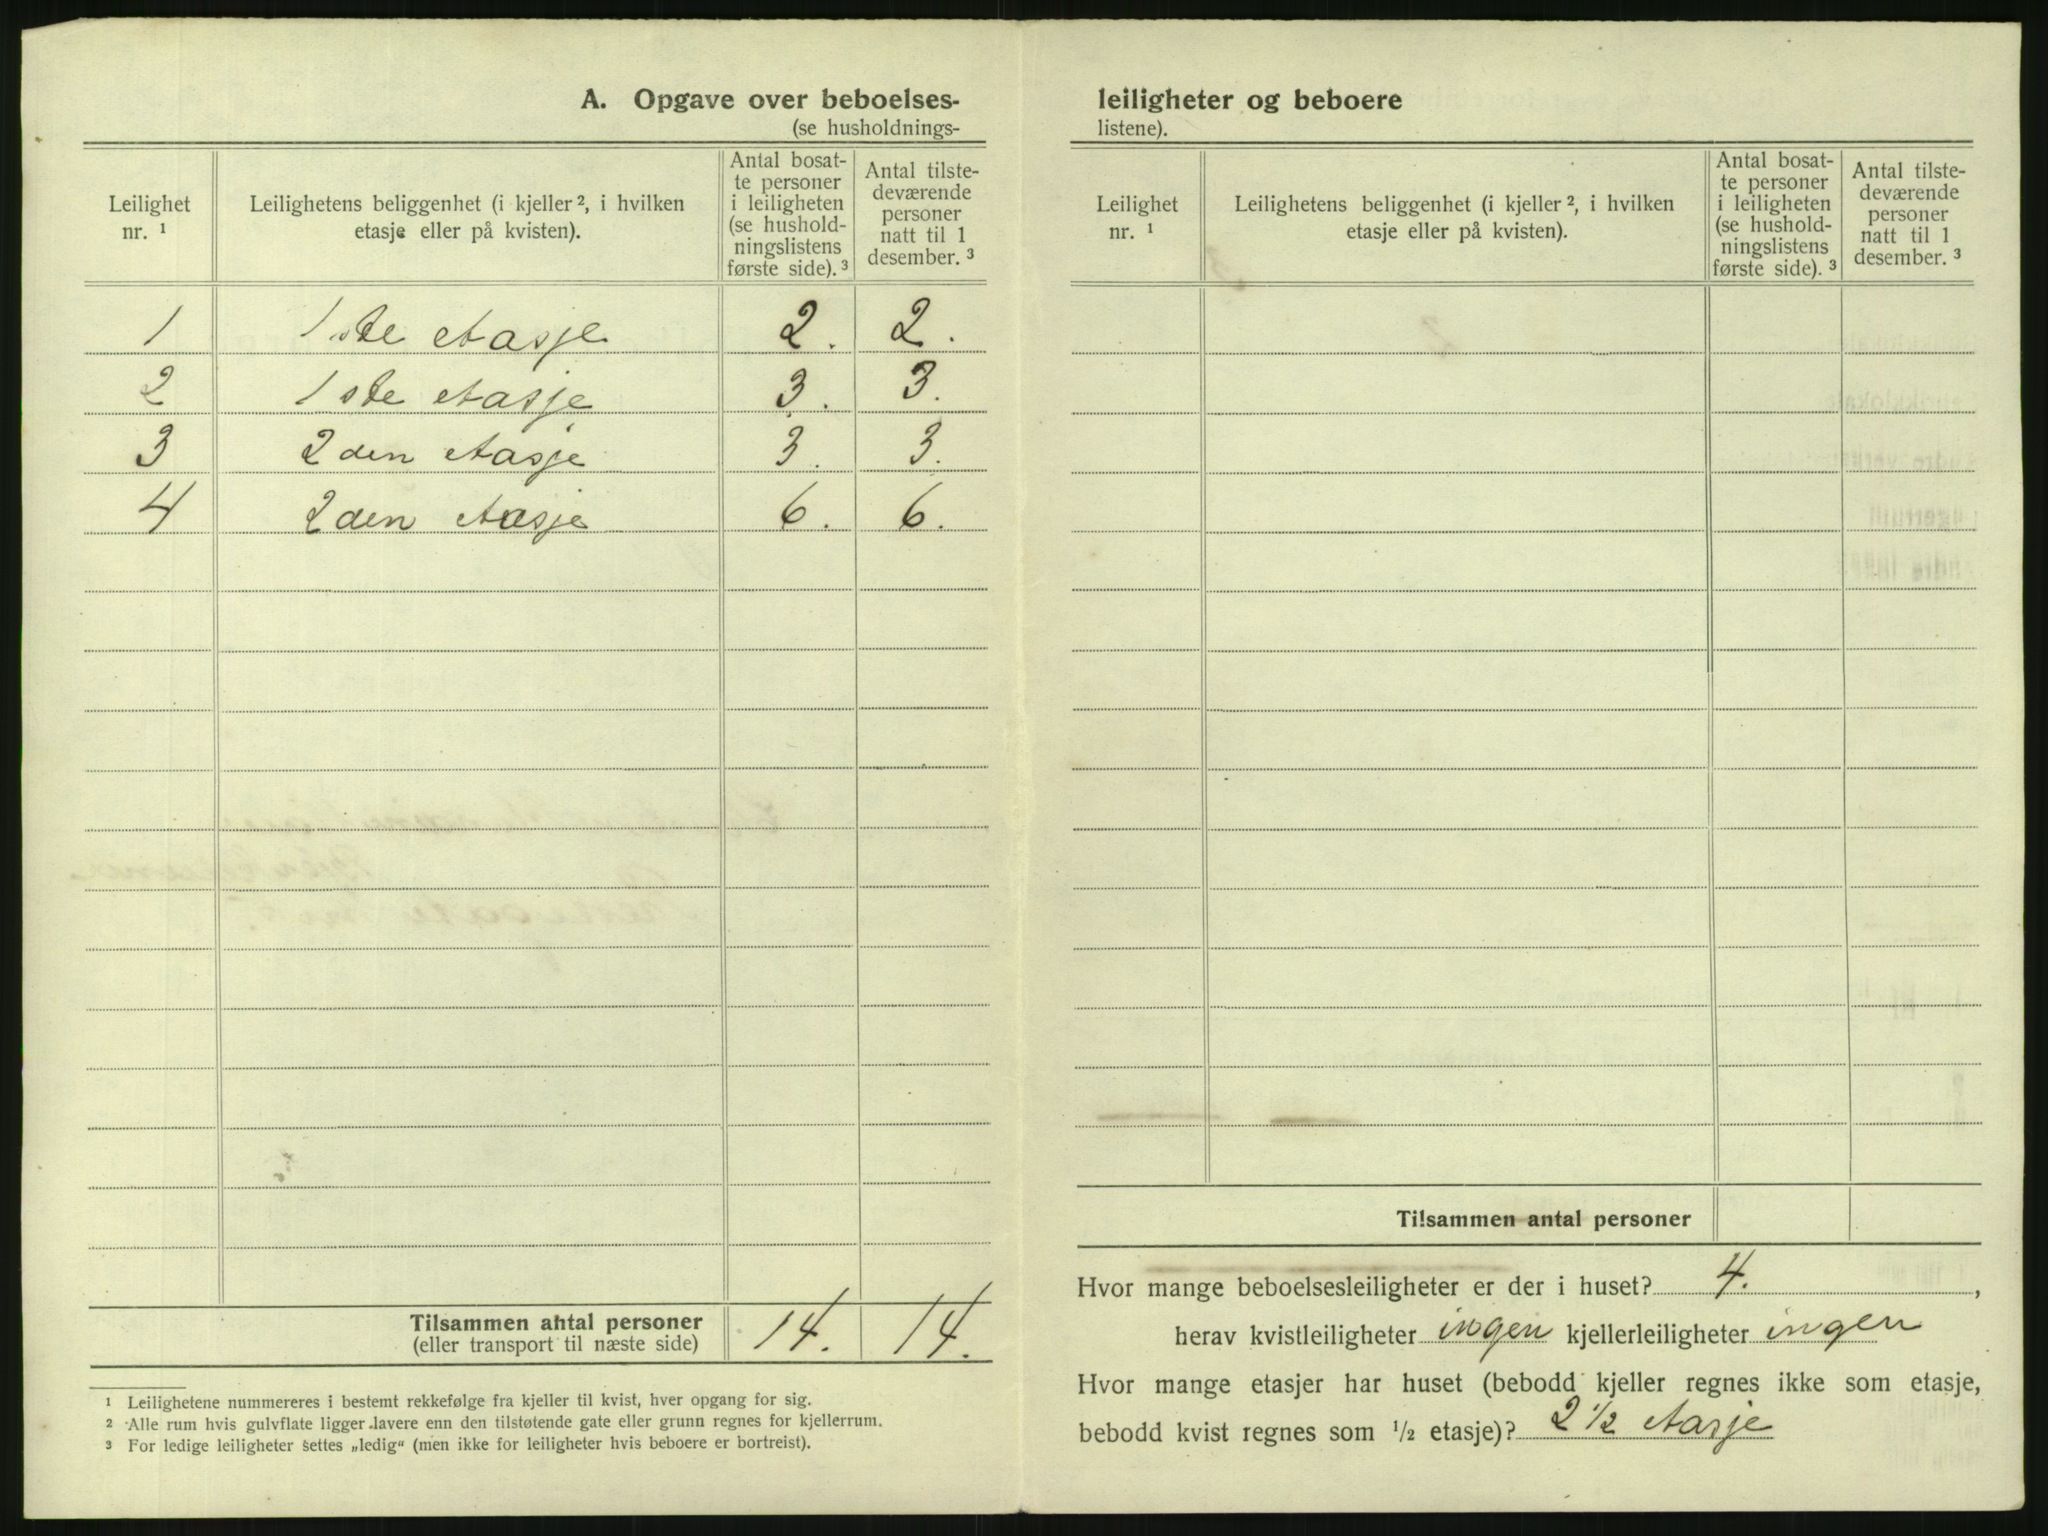 A. Opgave over beboelses-
(se husholdnings-
Leilighet nr. ¹
Leilighetens beliggenhet (i kjeller ², i hvilken etasje eller på kvisten).
Antal bosat-
te personer
i leiligheten
(se hushold-
ningslistens
første side). ³
Antal tilste-
deværende
personer
natt til 1
desember. ³
1 1ste etasje 2. 2.
2 1ste etasje 3. 3.
3 2den etasje 3. 3.
4 2den etasje 6. 6.
Tilsammen antal personer 14. 14.
(eller transport til næste side)
¹ Leilighetene nummereres i bestemt rekkefølge fra kjeller til kvist, hver opgang for sig.
² Alle rum hvis gulvflate ligger lavere enn den tilstøtende gate eller grunn regnes for kjellerrum.
³ For ledige leiligheter settes „ledig“ (men ikke for leiligheter hvis beboere er bortreist).
leiligheter og beboere
listene).
Leilighet nr. ¹
Leilighetens beliggenhet (i kjeller ², i hvilken etasje eller på kvisten).
Antal bosat-
te personer
i leiligheten
(se hushold-
ningslistens
første side). ³
Antal tilste-
deværende
personer
natt til 1
desember. ³
Tilsammen antal personer
Hvor mange beboelsesleiligheter er der i huset? 4.,
herav kvistleiligheter ingen kjellerleiligheter ingen
Hvor mange etasjer har huset (bebodd kjeller regnes ikke som etasje,
bebodd kvist regnes som ½ etasje)? 2 ½ etasje